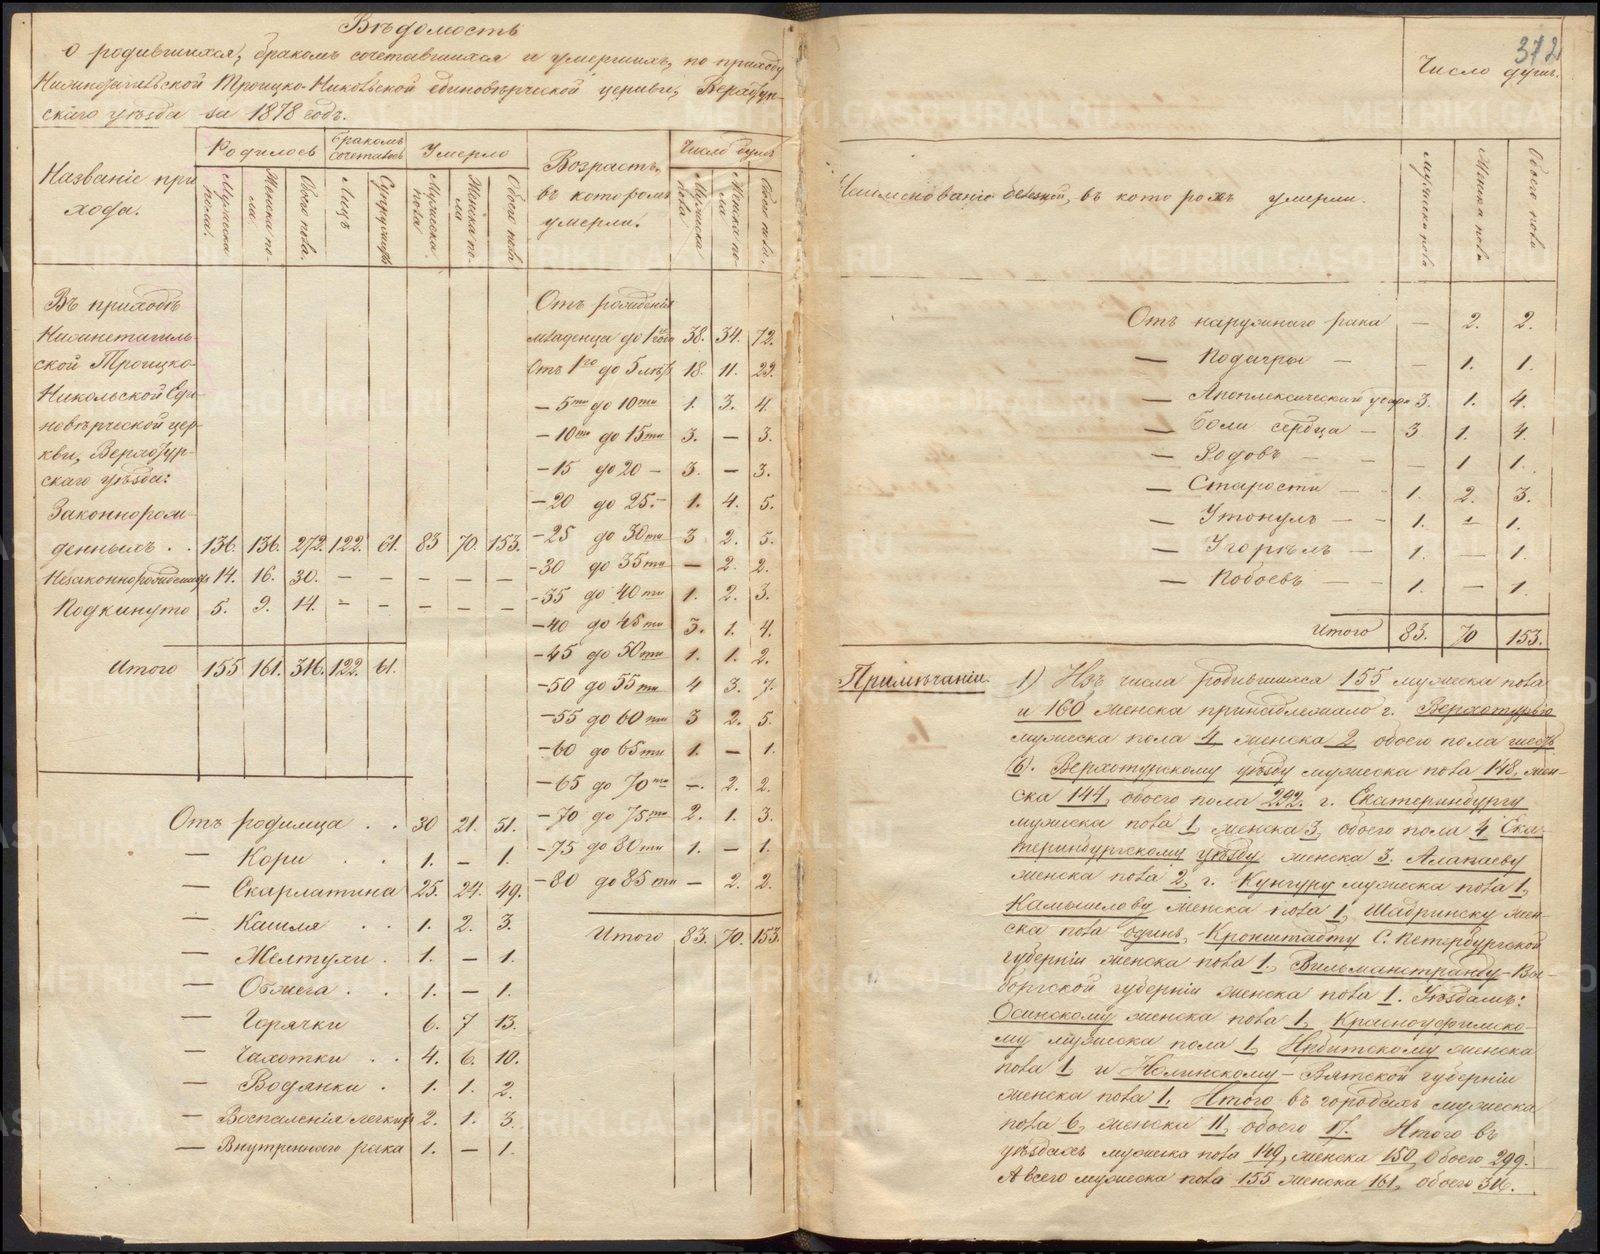 Вѣдомость
о родившихся, бракомъ сочетавшихся и умершихъ, по приходу
Нижнетагильской Троицко-Никольской единовѣрческой церкви, Верхотур-
скаго уѣзда за 1878 годъ.
Названіе при
хода.
Родилось
Мужеска пола.
Женска по-
ла.
Обоего пола.
Бракомъ
сочеталось
Лицъ
Супружествъ
Умерло
Мужеска
пола
Женска по-
ла
Обоего пола
Возрастъ,
въ которомъ
умерли.
Число душъ
Мужска
пола
Женска по-
ла
Обоего пола.
Въ приходѣ
Нижнетагиль-
ской Троицко-
Никольской Еди-
новѣрческой цер-
кви, Верхотур-
скаго уѣзда:
Законнорож-
денныхъ . . 136. 136. 272. 122. 61. 83 70. 153.
Незаконнорожденныхъ 14. 16. 30. — — — — —
Подкинуто 5. 9. 14. — — — — —
Итого 155 161. 316. 122. 61.
Отъ родимца . . 30 21. 51.
— Кори . . 1. — 1.
— Скарлатина 25. 24. 49.
— Кашля . . 1. 2. 3.
— Желтухи . 1. — 1.
— Обжега . . 1. — 1.
— Горячки 6. 7 13.
— Чахотки . . 4. 6. 10.
— Водянки . 1. 1. 2.
— Воспаленія легкихъ 2. 1. 3.
— Внутренняго рака 1. — 1.
Отъ рожденія
младенца до 1го года 38. 34. 72.
Отъ 1го до 5 лѣтъ 18. 11. 29.
— 5ти до 10ти 1. 3. 4.
— 10ти до 15ти 3. — 3.
— 15 до 20 — 3. — 3.
— 20 до 25. — 1. 4. 5.
— 25 до 30ти 3 2. 5.
— 30 до 35ти — 2. 2.
— 35 до 40ти 1. 2. 3.
— 40 до 45ти 3. 1. 4.
— 45 до 50ти 1. 1. 2.
— 50 до 55ти 4 3. 7.
— 55 до 60ти 3 2. 5.
— 60 до 65ти 1. — 1.
— 65 до 70ти —. 2. 2.
— 70 до 75ти 2. 1. 3.
— 75 до 80ти 1. — 1.
— 80 до 85ти — 2. 2.
Итого 83. 70. 153.
372
Число душъ.
Наименованіе болѣзней, въ которыхъ умерли.
Мужска пола
Женска пола
Обоего пола
Отъ наружнаго рака — 2. 2.
— Подагры — — 1. 1.
— Апоплексическаго удара 3. 1. 4.
— Боли сердца — 3 1. 4.
— Родовъ — — — 1 1.
— Старости — - 1. 2. 3.
— Утонулъ — - 1. — 1.
— Угорѣлъ — 1. — 1.
— Побоевъ — — 1. — 1.
Итого 83. 70 153.
Примѣчаніи. 1) Изъ числа родившихся 155 мужеска пола
и 160 женска принадлежало г. Верхотурью
мужеска пола 4, женска 2 обоего пола шесть
(6). Верхотурскому уѣзду мужеска пола 148, жен-
ска 144, обоего пола 292. г. Екатеринбургу
мужеска пола 1, женска 3, обоего пола 4 Ека-
теринбургскому уѣзду женска 3. Алапаеву
женска пола 2, г. Кунгуру мужеска пола 1,
Камышлову женска пола 1, Шадринску жен-
ска пола одинъ, Кронштадту С. Петербургской
губерніи женска пола 1., Вильманстранду - Вы-
боргской губерніи женска пола 1. Уѣздамъ:
Осинскому женска пола 1, Красноуфимско-
му мужеска пола 1, Ирбитскому женска
пола 1 и Нолинскому - Вятской губерніи
женска пола 1. Итого въ городахъ мужеска
пола 6, женска 11, обоего 17. Итого въ
уѣздахъ мужеска пола 149, женска 150, обоего 299.
А всего мужеска пола 155 женска 161, обоего 316.
METRIKI.GASO-URAL.RU